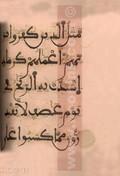 مثل الذين كفروا بر
بهم أعملهم كرماد
اشتدت به الريح في
يوم عاصف لا يقد
رون مما كسبوا على